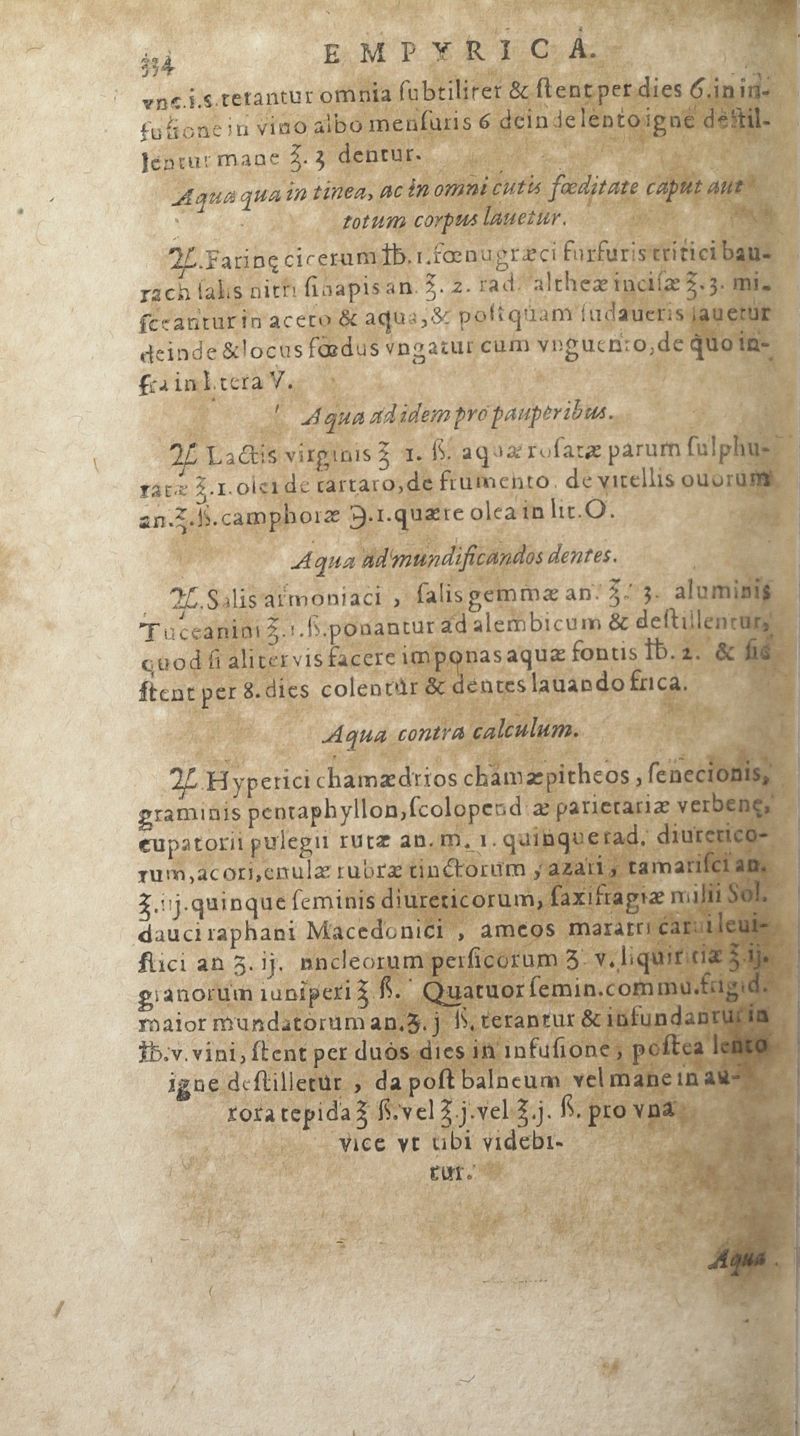 334 EMPYRICA.
vnc.i.s.terantur omnia ſubtiliter & ſtent per dies 6.in in-
fuſione in vino albo menſuris 6 dein de lento igne deſtil-
lentur mane ℥. 3 dentur.
Aqua qua in tinea, ac in omni cutis fœditate caput aut
totum corpus lauetur.
℞.Farinę cicerum ℔.1.fœnugræci furfuris tritici bau-
rach ſalis nitri ſinapis an. ℥. 2. rad. altheæ inciſæ ℥.3. mi-
ſceantur in aceto & aqua,& poſtquam ſudaueris lauetur
deinde & locus fœdus vngatur cum vnguento,de quo in-
fra in l.tera V.
Aqua ad idem pro pauperibus.
℞ Lactis virginis ℥ 1. ß. aquæ roſatæ parum ſulphu-
ratæ ℥.1.olei de tartaro,de frumento. de vitellis ouorum
an.℥.ß.camphoræ ℈.1.quære olea in lit.O.
Aqua ad mundificandos dentes.
℞.Salis armoniaci , ſalis gemmæ an. ℥. 3. aluminis
Tuceanini ℥.1.ß.ponantur ad alembicum & deſtillentur,
quod ſi aliter vis facere imponas aquæ fontis ℔. 2. & ſic
ſtent per 8.dies colentur & dentes lauando frica.
Aqua contra calculum.
℞ Hyperici chamædrios chamæpitheos , ſenecionis,
graminis pentaphyllon,ſcolopend æ parietariæ verbenę,
eupatorii pulegii rutæ an. m. 1. quinque rad. diuretico-
rum,acori,enulæ rubræ tinctorum , azari , tamariſci an.
℥.iij.quinque ſeminis diureticorum, ſaxifragiæ milii Sol.
dauci raphani Macedonici , ameos maratri carui leui-
ſtici an ʒ. ij. nncleorum perſicorum ʒ v. liquiritiæ ℥ ij.
granorum iuniperi ℥ ß. Quatuor ſemin.commu.frigid.
maior mundatorum an.ʒ.j ß. terantur & infundantur in
℔.v.vini, ſtent per duos dies in infuſione , poſtea lento
igne deſtilletur , da poſt balneum vel mane in au-
rora tepida ℥ ß.vel ℥.j.vel ℥.j. ß. pro vna
vice vt tibi videbi-
tur.
Aqua